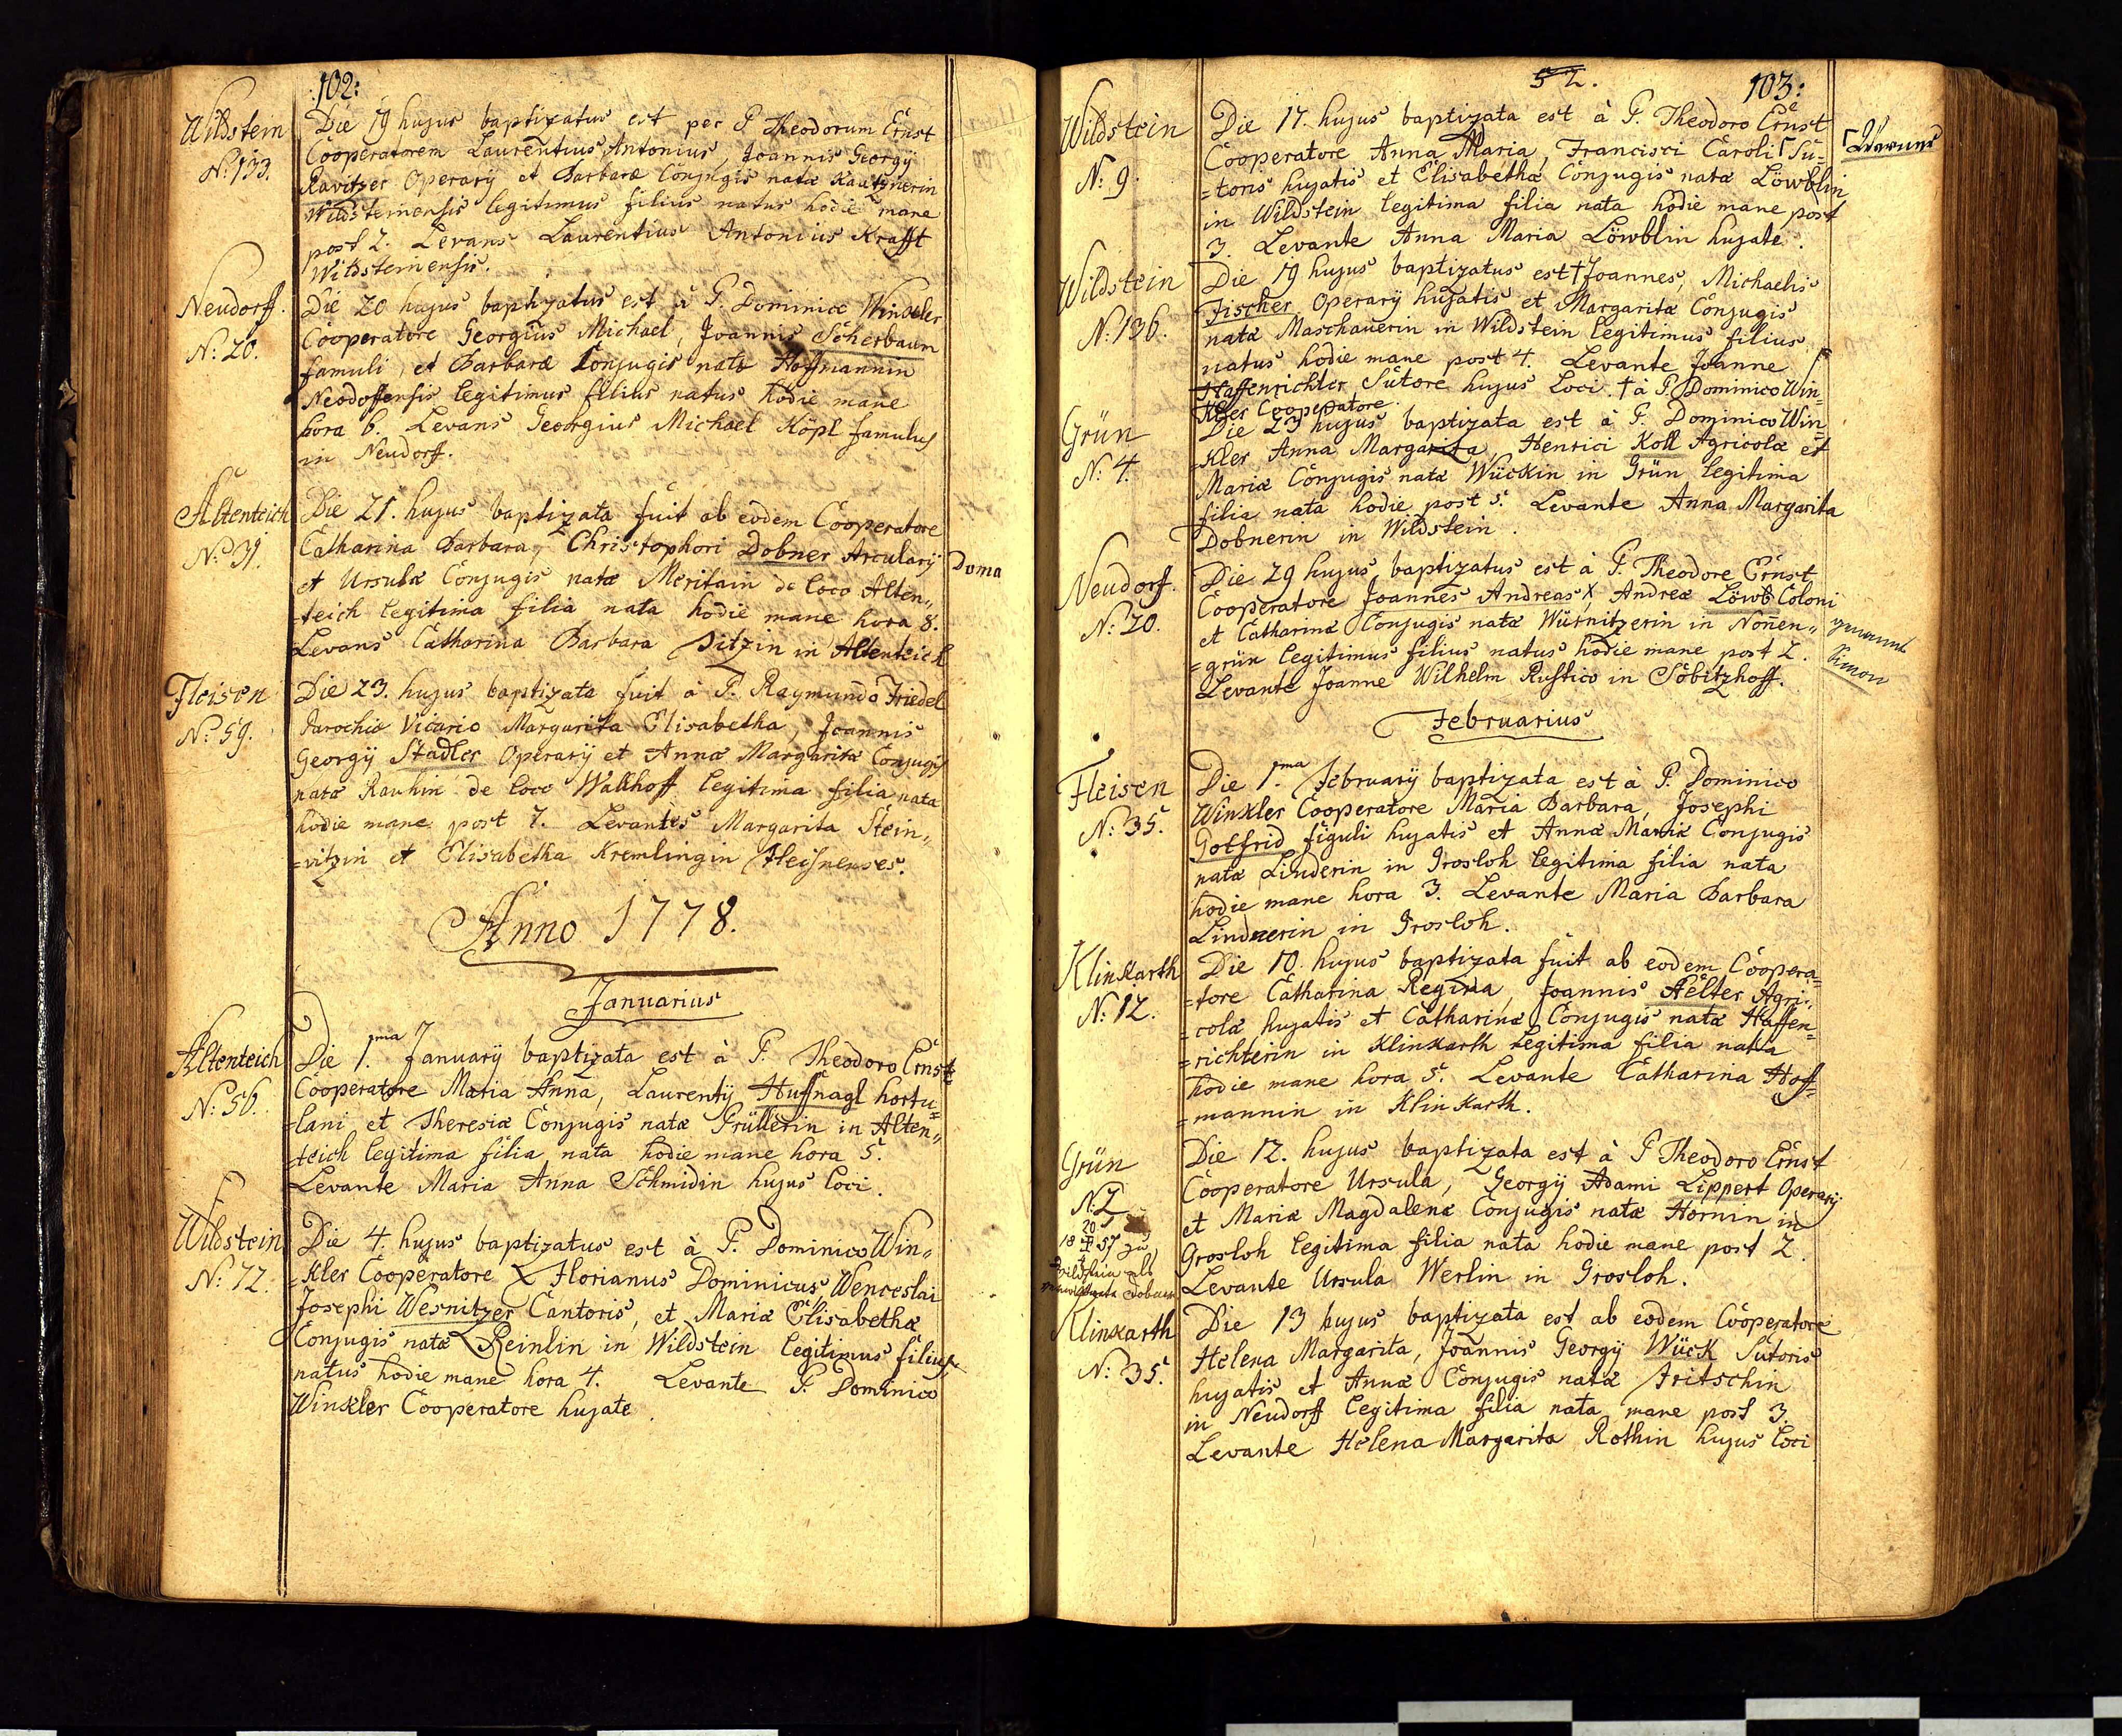 102:
Wildstein
N: 133.
Die 19 hujus baptizatus est per P Theodorum Ernst
Cooperatorem Laurentius Antonius, Joannis Georgÿ
Ravitzer Operarÿ et Barbaræ Conjugis natæ Kautznerin
Wildsteinensis legitimus filius natus hodie mane
post 2. Levans Laurentius Antonius Krafft
Wildsteinensis.
Neudorff.
N: 20.
Die 20 hujus baptizatus est à P. Dominico Winkler
Cooperatore Georgius Michael, Joannis Scherbaum
famuli, et Barbaræ Conjugis natæ Hoffmannin
Neodoffensis legitimus filius natus hodie mane
hora 6. Levans Georgius Michael Köpl famulus
in Neudorff.
Altenteich
N: 31.
Die 21. hujus baptizata fuit ab eodem Cooperatore
Catharina Barbara, Christophori Dobner Arcularÿ
Doma
et Ursulæ Conjugis natæ Meritain de loco Alten„
=teich legitima filia nata hodie mane hora 8.
Levans Catharina Barbara Sitzin in Altenteich
Fleisen
N: 59.
Die 23. hujus baptizata fuit à P. Raymundo Friedel
Parochie Vicario Margarita Elisabetha, Joannis
Georgÿ Stadler Operarÿ et Annæ Margaritæ Conjugis
natæ Rauhin de loco Walkhoff legitima filia nata
hodie mane post 7. Levantes Margarita Stein„
=vitzin et Elisabetha Kremlingin Fleisnenses.
Anno 1778.
Januarius
Altenteich
N: 56.
Die 1.ma Januarÿ baptizata est à P. Theodoro Ernst
Cooperatore Maria Anna, Laurentÿ Huffnagl hortu=
=lani et Theresiæ Conjugis natæ Prüllerin in Alten„
=teich legitima filia nata hodie mane hora 5.
Levante Maria Anna Schmidin hujus loci.
Wildstein
N: 72.
Die 4. hujus baptizatus est à P. Dominico Win„
=kler Cooperatore Florianus Dominicus, Wenceslai
Josephi Wesnitzer Cantoris, et Mariæ Elisabethæ
Conjugis natæ Reinlin in Wildstein legitimus filius
natus hodie mane hora 4. Levante P. Dominico
Winkler Cooperatore hujate.
52.
103:
Wildstein
N: 9.
Die 17. hujus baptizata est à P. Theodoro Ernst
Cooperatore Anna Maria, Francisci Caroli Γ Su=
Γ Werner
=toris hujatis et Elisabethæ Conjugis natæ Löwblin
in Wildstein legitima filia nata hodie mane post
3. Levante Anna Maria Löwblin hujate.
Wildstein
N: 136.
Die 19 hujus baptizatus est † Joannes, Michaelis
Fischer Operarÿ hujatis et Margaritæ Conjugis
natæ Maschauerin in Wildstein legitimus filius
natus hodie mane post 4. Levante Joanne
Haffenrichter Sutore hujus loci. † à P. Dominico Win=
kler Cooperatore.
Grün
N: 4.
Die 23 hujus baptizata est à P. Dominico Win
=kler Anna Margarita, Henrici Koll Agricolæ et
Mariæ Conjugis natæ Wückin in Grün legitima
filia nata hodie post 5. Levante Anna Margarita
Dobnerin in Wildstein.
Neudorf.
N: 20.
Die 29 hujus baptizatus est à P. Theodore Ernst
Cooperatore Joannes Andreas, Andreæ Löwb Coloni
genannt
Simon
et Catharinæ Conjugis natæ Würnitzerin in Noñen„
=grün legitimus filius natus hodie mane post 2.
Levante Joanne Wilhelm Rustico in Söbitzhoff.
Februarius
Fleisen
N: 35.
Die 1.ma Februarÿ baptizata est à P. Dominico
Winkler Cooperatore Maria Barbara, Josephi
Gotfrid figuli hujatis et Annæ Mariæ Conjugis
natæ Linderin in Grosloh legitima filia nata
hodie mane hora 3. Levante Maria Barbara
Lindnerin in Grosloh.
Klinkarth
N: 12.
Die 10. hujus baptizata fuit ab eodem Coopera=
=tore Catharina Regina, Joannis Aelter Agri=
=colæ hujatis et Catharinæ Conjugis natæ Haffen=
=richterin in Klinkarth legitima filia nata
hodie mane hora 5. Levante Catharina Hoff=
=mannin in Klinkarth.
Grün
N: 2
Die 12. hujus baptizata est à P Theodoro Ernst
Cooperatore Ursula, Georgÿ Adami Lippert Operarÿ
et Mariæ Magdalenæ Conjugis natæ Hornin in
Grosloh legitima filia nata hodie mane post 2.
Levante Ursula Werlin in Grosloh.
Klinkarth
N: 35.
Die 13 hujus baptizata est ab eodem Cooperatore
Helena Margarita, Joannis Georgÿ Wück Sutoris
hujatis et Annæ Conjugis natæ Fritschin
in Neudorff legitima filia nata mane post 3.
Levante Helena Margarita Rothin hujus loci